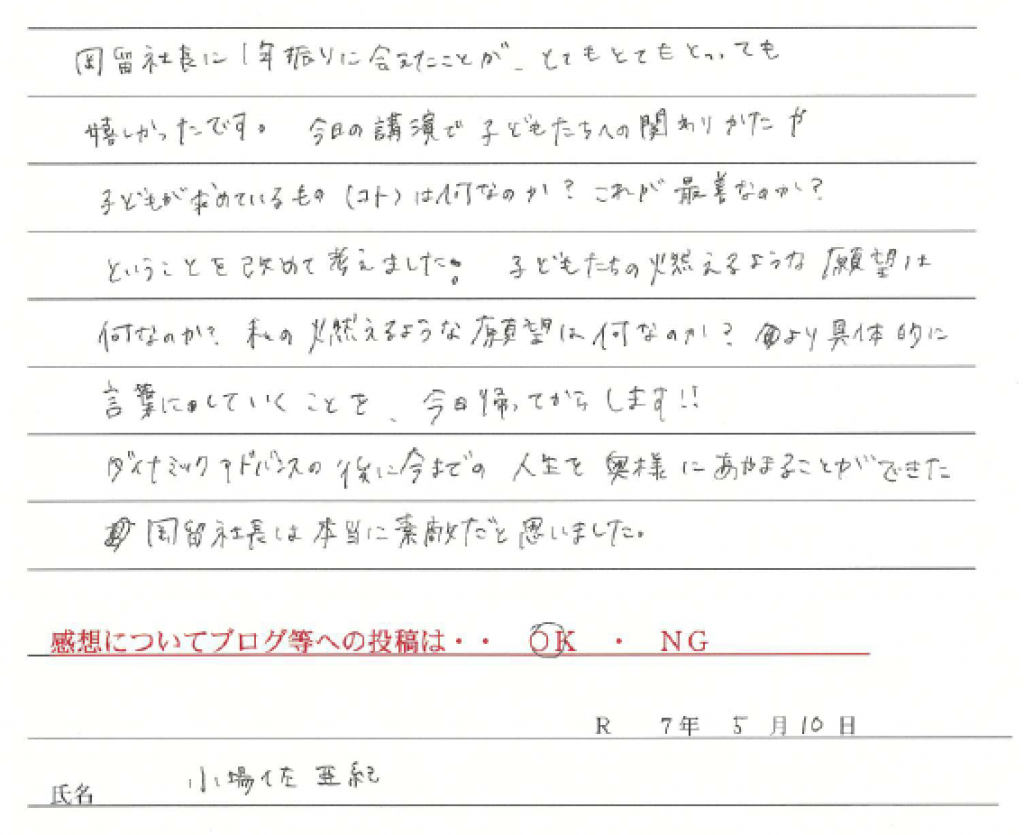 岡留社長に1年振りに会えたことが、とてもとてもとっっても
嬉しかったです。 今日の講演で子どもたちへの関わりかたや
子どもが求めているもの(コト)は何なのか?これが最善なのか?
ということを改めて考えました。 子どもたちの燃えるような願望は
何なのか? 私の燃えるような願望は何なのか? より具体的に
言葉にしていくことを、今日帰ってからします!!
ダイナミックアドバンスの後に今までの人生を奥様にあやまることができた
岡留社長は本当に素敵だと思いました。
感想についてブログ等への投稿は・・ OK ・ NG
R 7年 5月10日
氏名 小場佐亜紀